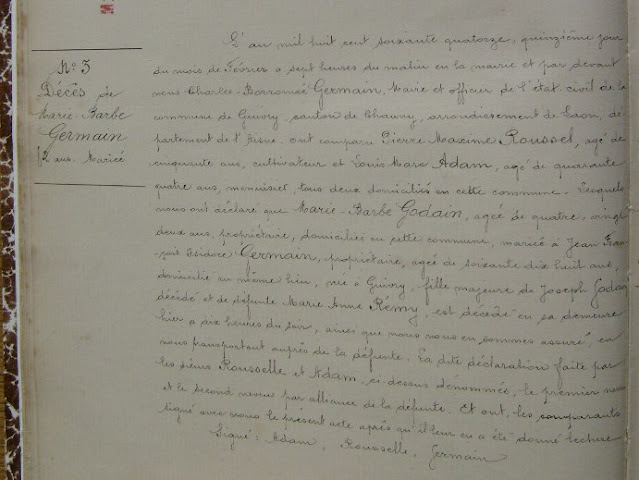 N° 3
Décès de
Marie Barbe
Germain
82 ans. Mariée
L'an mil huit cent soixante quatorze, quinzième jour
du mois de Février à sept heures du matin en la mairie et par devant
nous Charles Borromée Germain, Maire et officier de l'état civil de la
commune de Guivry canton de Chauny, arrondissement de Laon, dé-
partement de l'Aisne. ont comparu Pierre Maxime Roussel, agé de
cinquante ans, cultivateur et Louis Marc Adam, agé de quarante
quatre ans, menuisier, tous deux domiciliés en cette commune. Lesquels
nous ont déclaré que Marie-Barbe Godain, agée de quatre-vingt
deux ans, propriétaire, domiciliée en cette commune, mariée à Jean Fran-
çois Isidore Germain, propriétaire, agé de soixante dix huit ans,
domicilié au même lieu, née à Guivry, fille majeure de Joseph Godain
décédé et de défunte Marie Anne Rémy, est décédée en sa demeure
hier à dix heures du soir, ainsi que nous nous en sommes assuré, en
nous transportant auprès de la défunte. La dite déclaration faite par
les sieurs Rousselle et Adam, ci-dessus dénommés, le premier neveu
et le second neveu par alliance de la défunte. Et ont, les comparants
signé avec nous le présent acte après qu'il leur en a été donné lecture
Signé: Adam, Rousselle, Germain